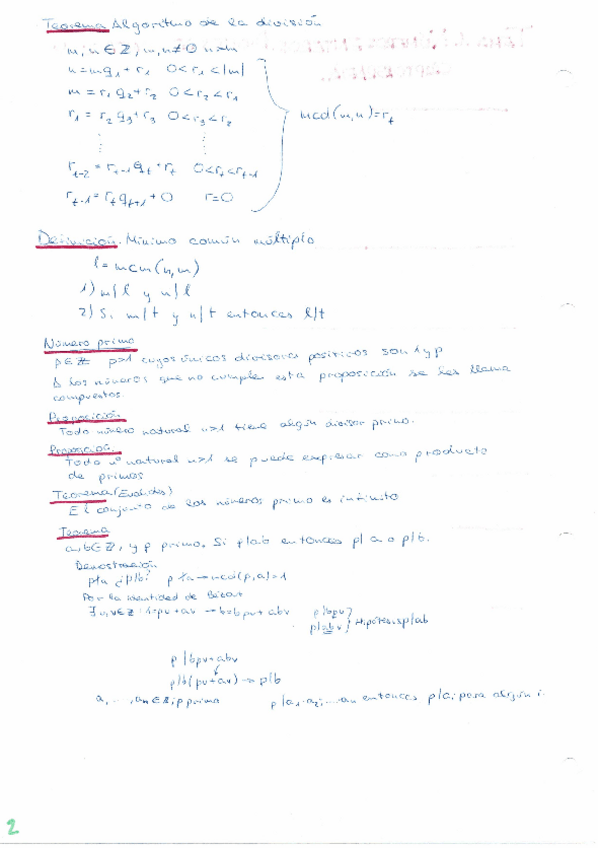 Teorema Algoritmo de la división
m,n ∈ Z, m,n≠0 n>m
n = mq₁ + r₁ 0<r₁<|m|
m = r₁q₂ + r₂ 0<r₂<r₁
r₁ = r₂q₃ + r₃ 0<r₃<r₂
mcd(m,n)=r_t
r_{t-2} = r_{t-1}q_t + r_t 0<r_t<r_{t-1}
r_{t-1} = r_t q_{t+1} + 0 r=0
Definición. Mínimo común múltiplo
l = mcm(n,m)
1) m/l y n/l
2) Si m/t y n/t entonces l/t
Número primo
p∈Z p>1 cuyos únicos divisores positivos son 1 y p
A los números que no cumplen esta proposición se les llama
compuestos.
Proposición
Todo número natural n>1 tiene algún divisor primo.
Proposición.
Todo nº natural n>1 se puede expresar como producto
de primos
Teorema (Euclides)
El conjunto de los números primo es infinito
Teorema
a,b∈Z, y p primo. Si p/ab entonces p/a o p/b.
Demostración
p∤a ¿p/b? p∤a → mcd(p,a)=1
Por la identidad de Bézout
∃u,v∈Z : 1=pu+av → b=bpu+abv p/bpu
p/abv } Hipótesis p/ab
p/bpu+abv
p/b(pu+av) → p/b
a₁, ..., aₙ∈Z, p primo p/a₁·a₂·...aₙ entonces p/aᵢ para algún i
2